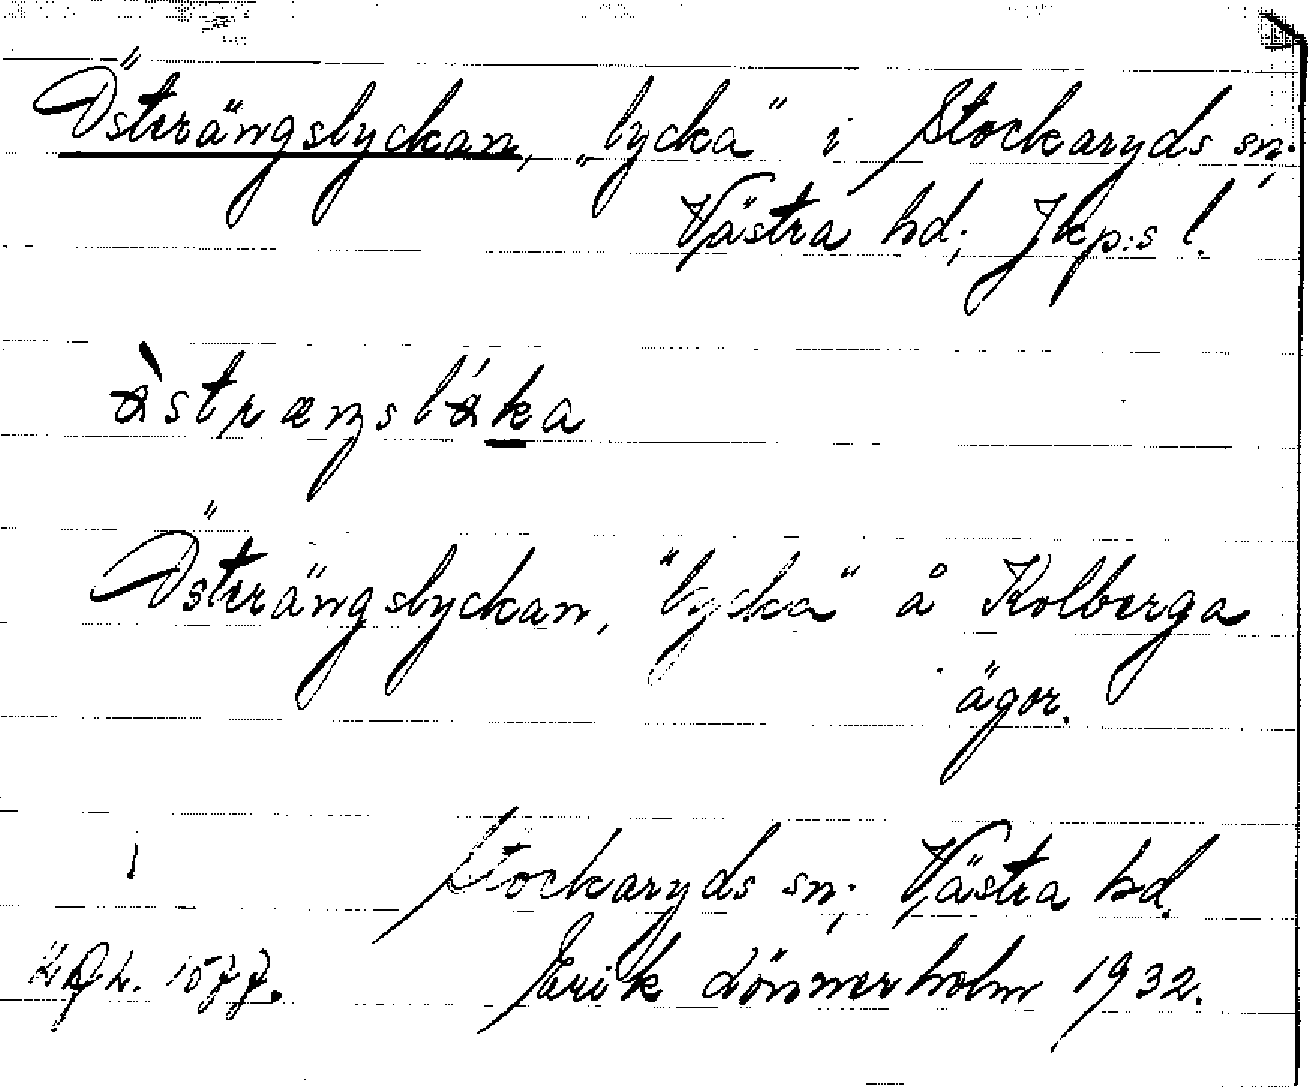 Österängslyckan, „lycka" i Stockaryds sn;
Västra hd; Jkp:s l.
Österängslyckan, "lycka" å Kolberga
ägor.
Stockaryds sn; Västra hd.
Erik Lönnerholm 1932.